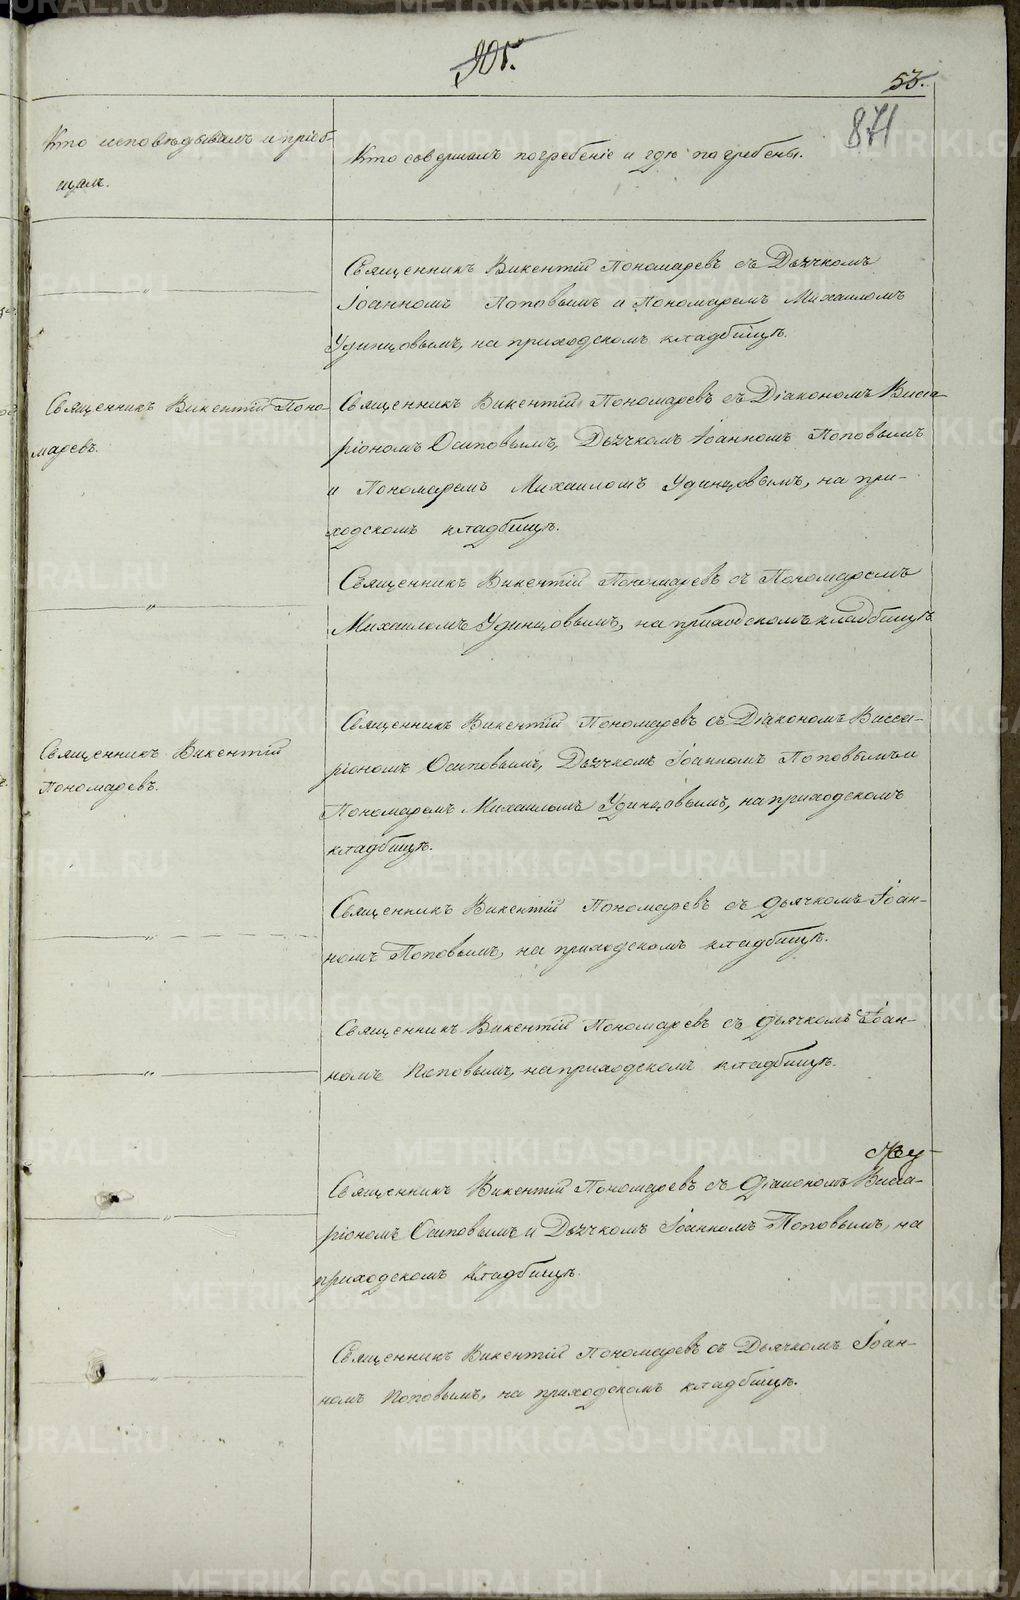 905.
53.
871
Кто исповѣдывалъ и пріоб-
щалъ.
Кто совершалъ погребеніе и гдѣ погребены.
Священникъ Викентій Пономаревъ съ Дьячкомъ
Іоанномъ Поповымъ и Пономаремъ Михаиломъ
Удинцовымъ, на приходскомъ кладбищѣ.
Священникъ Викентій Поно-
маревъ.
Священникъ Викентій Пономаревъ съ Діакономъ Висса-
ріономъ Осиповымъ, Дьячкомъ Іоанномъ Поповымъ
и Пономаремъ Михаиломъ Удинцовымъ, на при-
ходскомъ кладбищѣ.
Священникъ Викентій Пономаревъ съ Пономаремъ
Михаиломъ Удинцовымъ, на приходскомъ кладбищѣ.
Священникъ Викентій
Пономаревъ.
Священникъ Викентій Пономаревъ съ Діакономъ Висса-
ріономъ Осиповымъ, Дьячкомъ Іоанномъ Поповымъ и
Пономаремъ Михаиломъ Удинцовымъ, на приходскомъ
кладбищѣ.
Священникъ Викентій Пономаревъ съ дьячкомъ Іоан-
номъ Поповымъ, на приходскомъ кладбищѣ.
Священникъ Викентій Пономаревъ съ дьячкомъ Іоан-
номъ Поповымъ, на приходскомъ кладбищѣ.
Священникъ Викентій Пономаревъ съ Діакономъ Висса-
ріономъ Осиповымъ и Дьячкомъ Іоанномъ Поповымъ, на
приходскомъ кладбищѣ.
Священникъ Викентій Пономаревъ съ Дьячкомъ Іоан-
номъ Поповымъ, на приходскомъ кладбищѣ.
METRIKI.GASO-URAL.RU